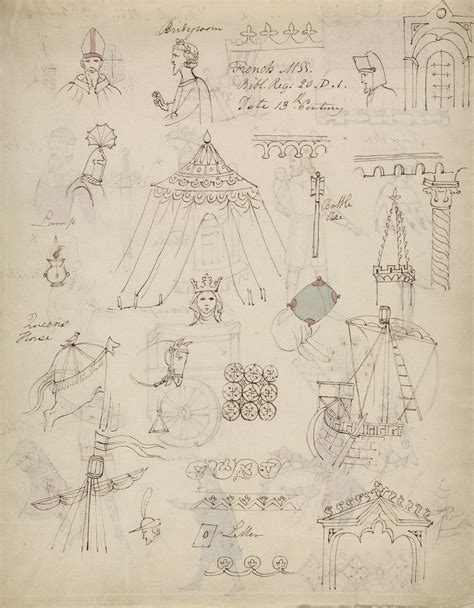 Bridegroom
French MSS.
Bibl. Reg. 20. D. 1.
Date 13th Century
Lamp
Battle
Axe
Queens
Horse
Letter